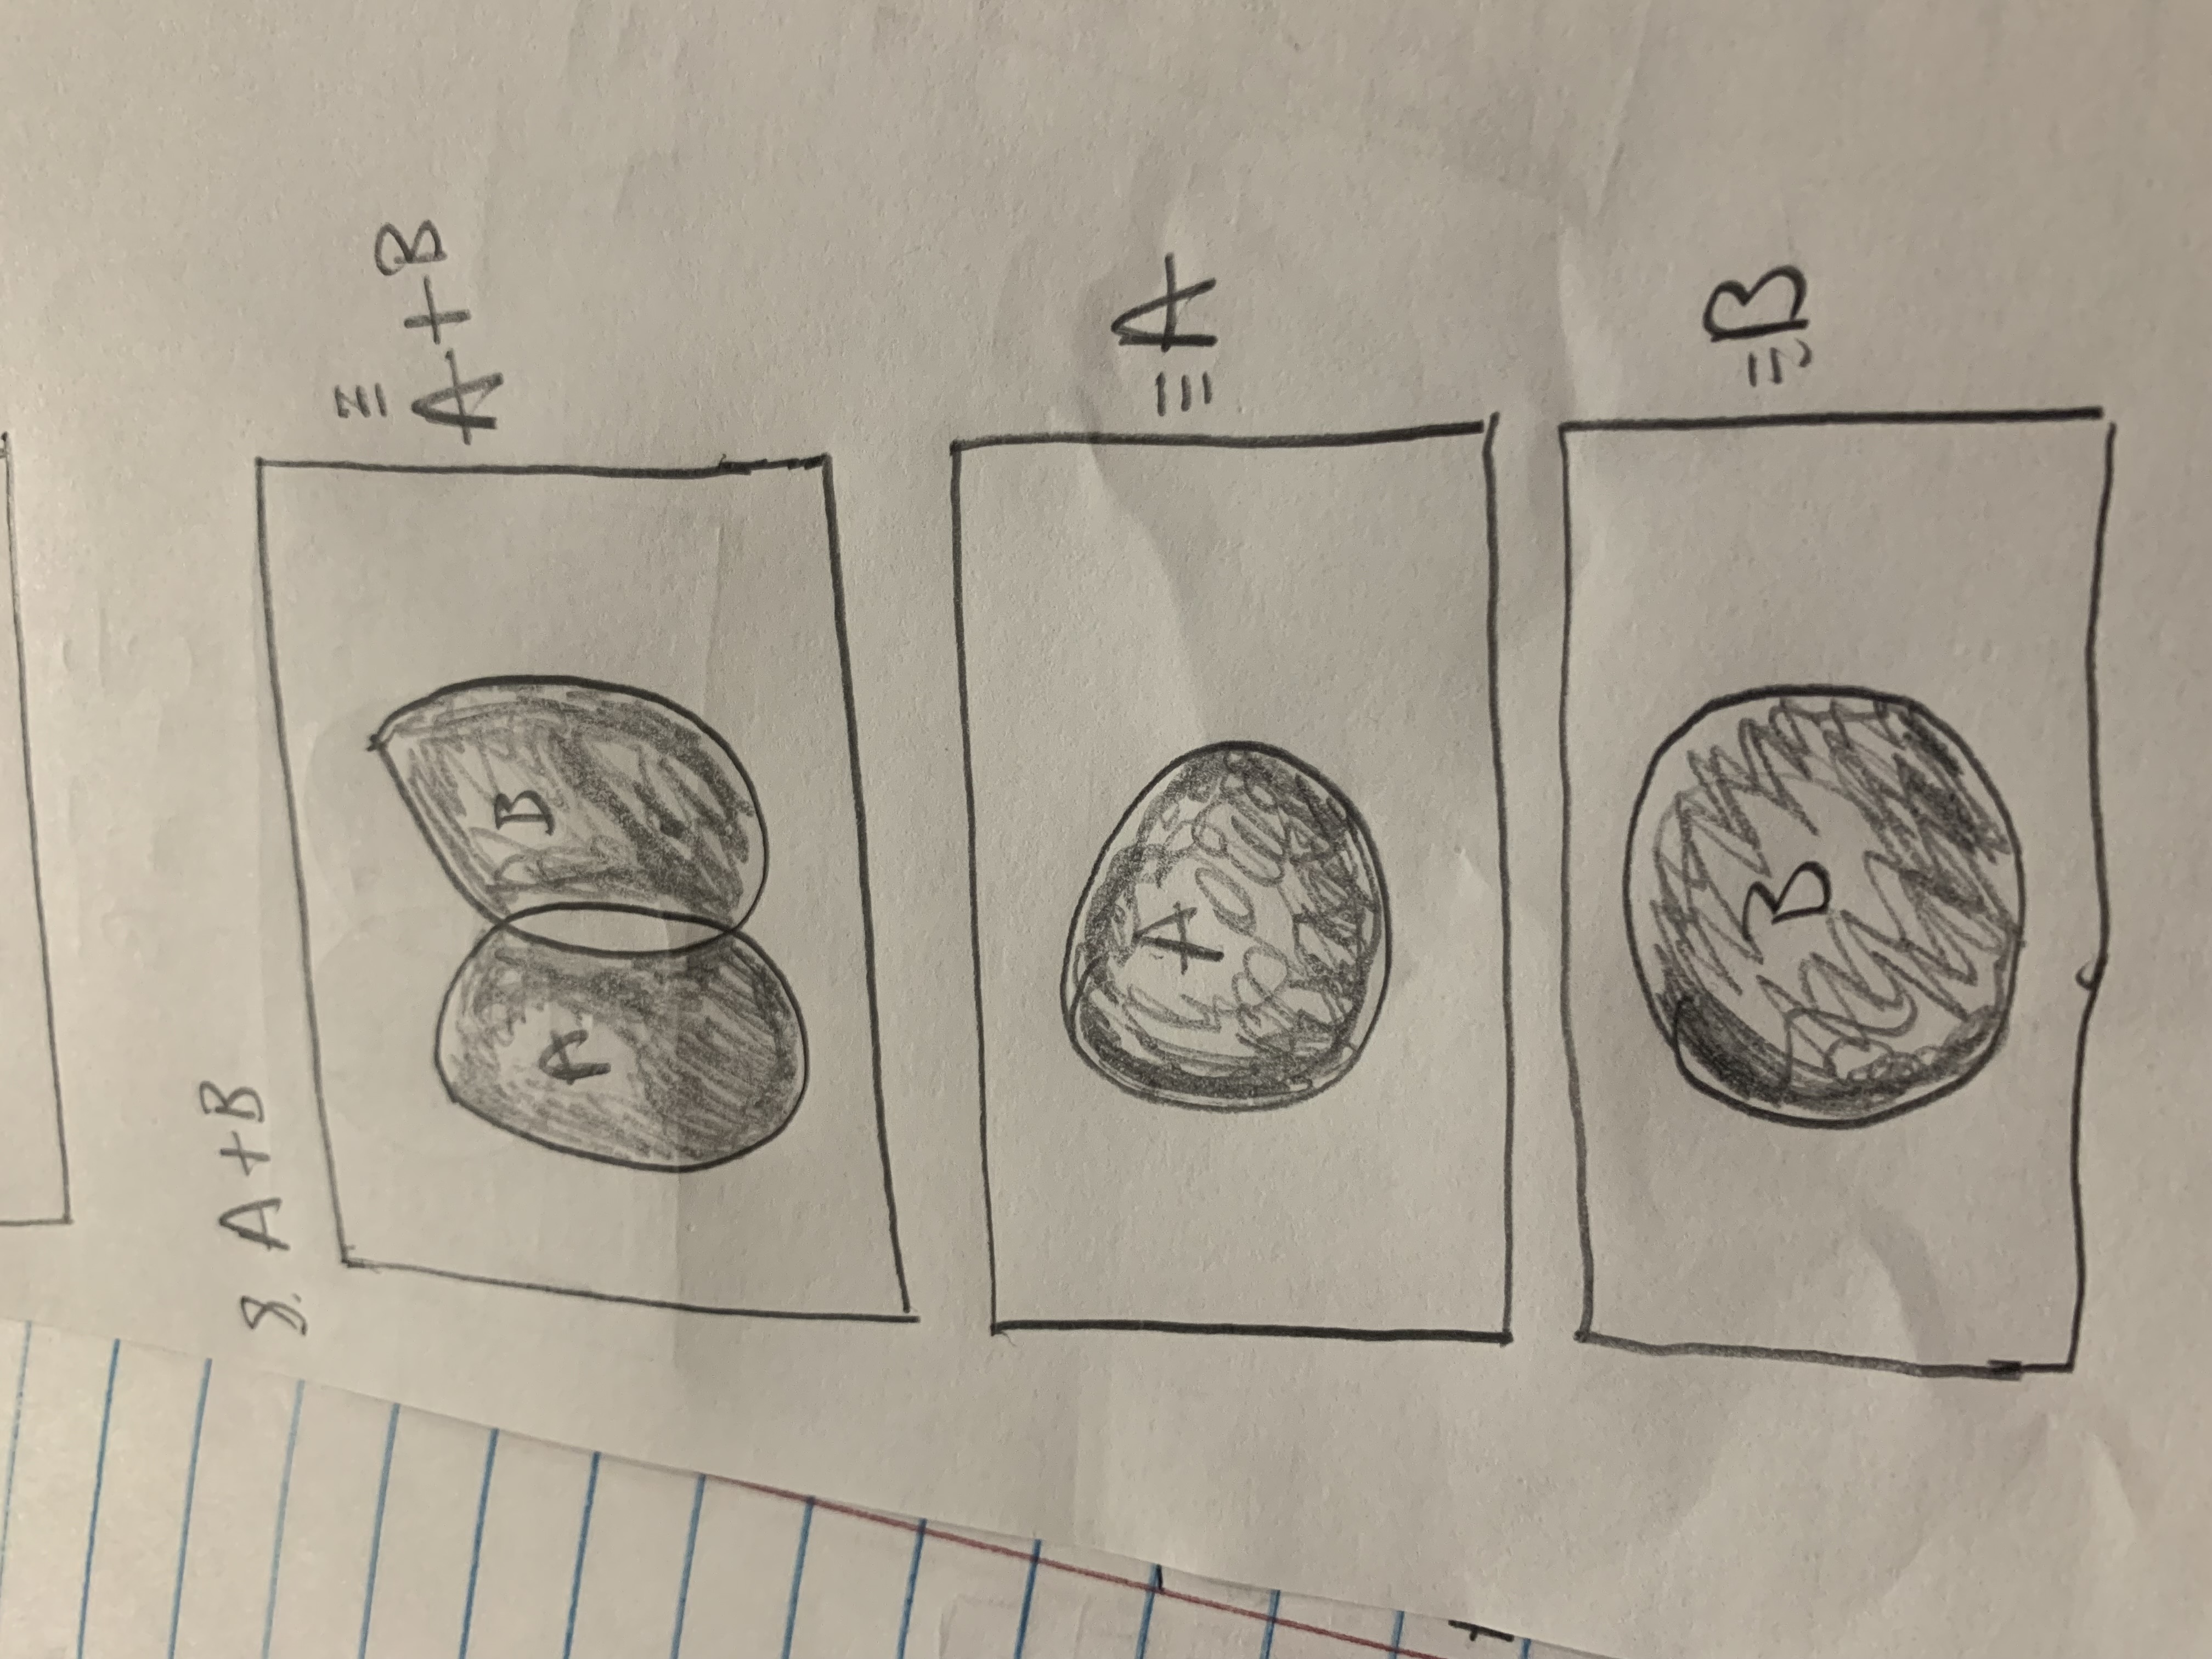 8. A+B
A
B
≡
A+B
A
≡A
B
≡B